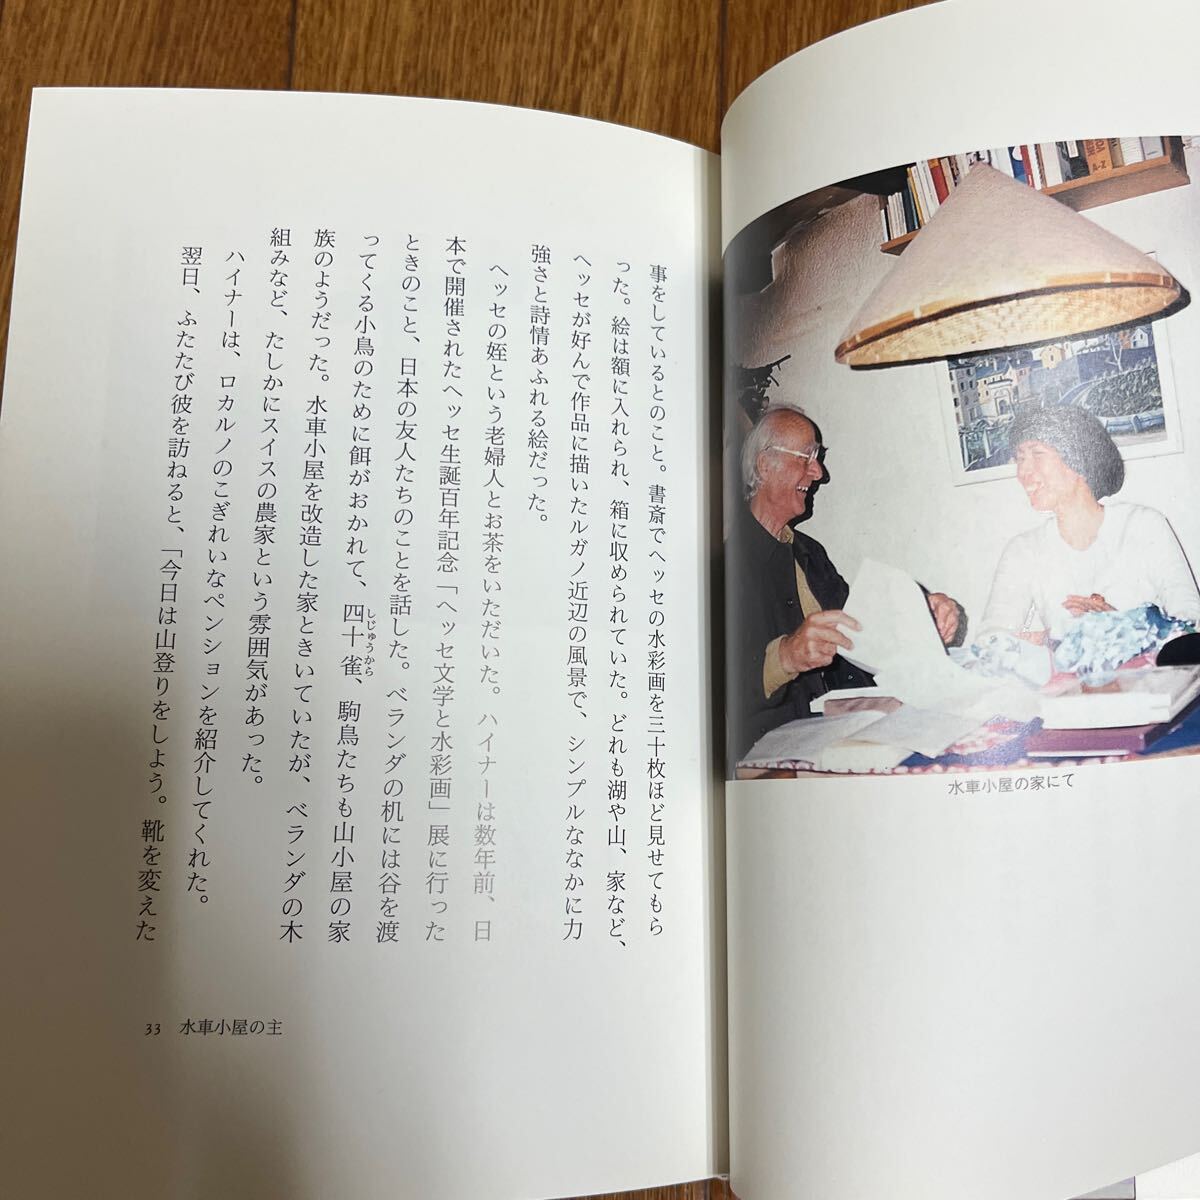 水車小屋の家にて
事をしているとのこと。書斎でヘッセの水彩画を三十枚ほど見せてもら
った。絵は額に入れられ、箱に収められていた。どれも湖や山、家など、
ヘッセが好んで作品に描いたルガノ近辺の風景で、シンプルななかに力
強さと詩情あふれる絵だった。
ヘッセの姪という老婦人とお茶をいただいた。ハイナーは数年前、日
本で開催されたヘッセ生誕百年記念「ヘッセ文学と水彩画」展に行った
ときのこと、日本の友人たちのことを話した。ベランダの机には谷を渡
ってくる小鳥のために餌がおかれて、四十雀、駒鳥たちも山小屋の家
しじゅうから
族のようだった。水車小屋を改造した家ときいていたが、ベランダの木
組みなど、たしかにスイスの農家という雰囲気があった。
ハイナーは、ロカルノのこぎれいなペンションを紹介してくれた。
翌日、ふたたび彼を訪ねると、「今日は山登りをしよう。靴を変えた
33 水車小屋の主